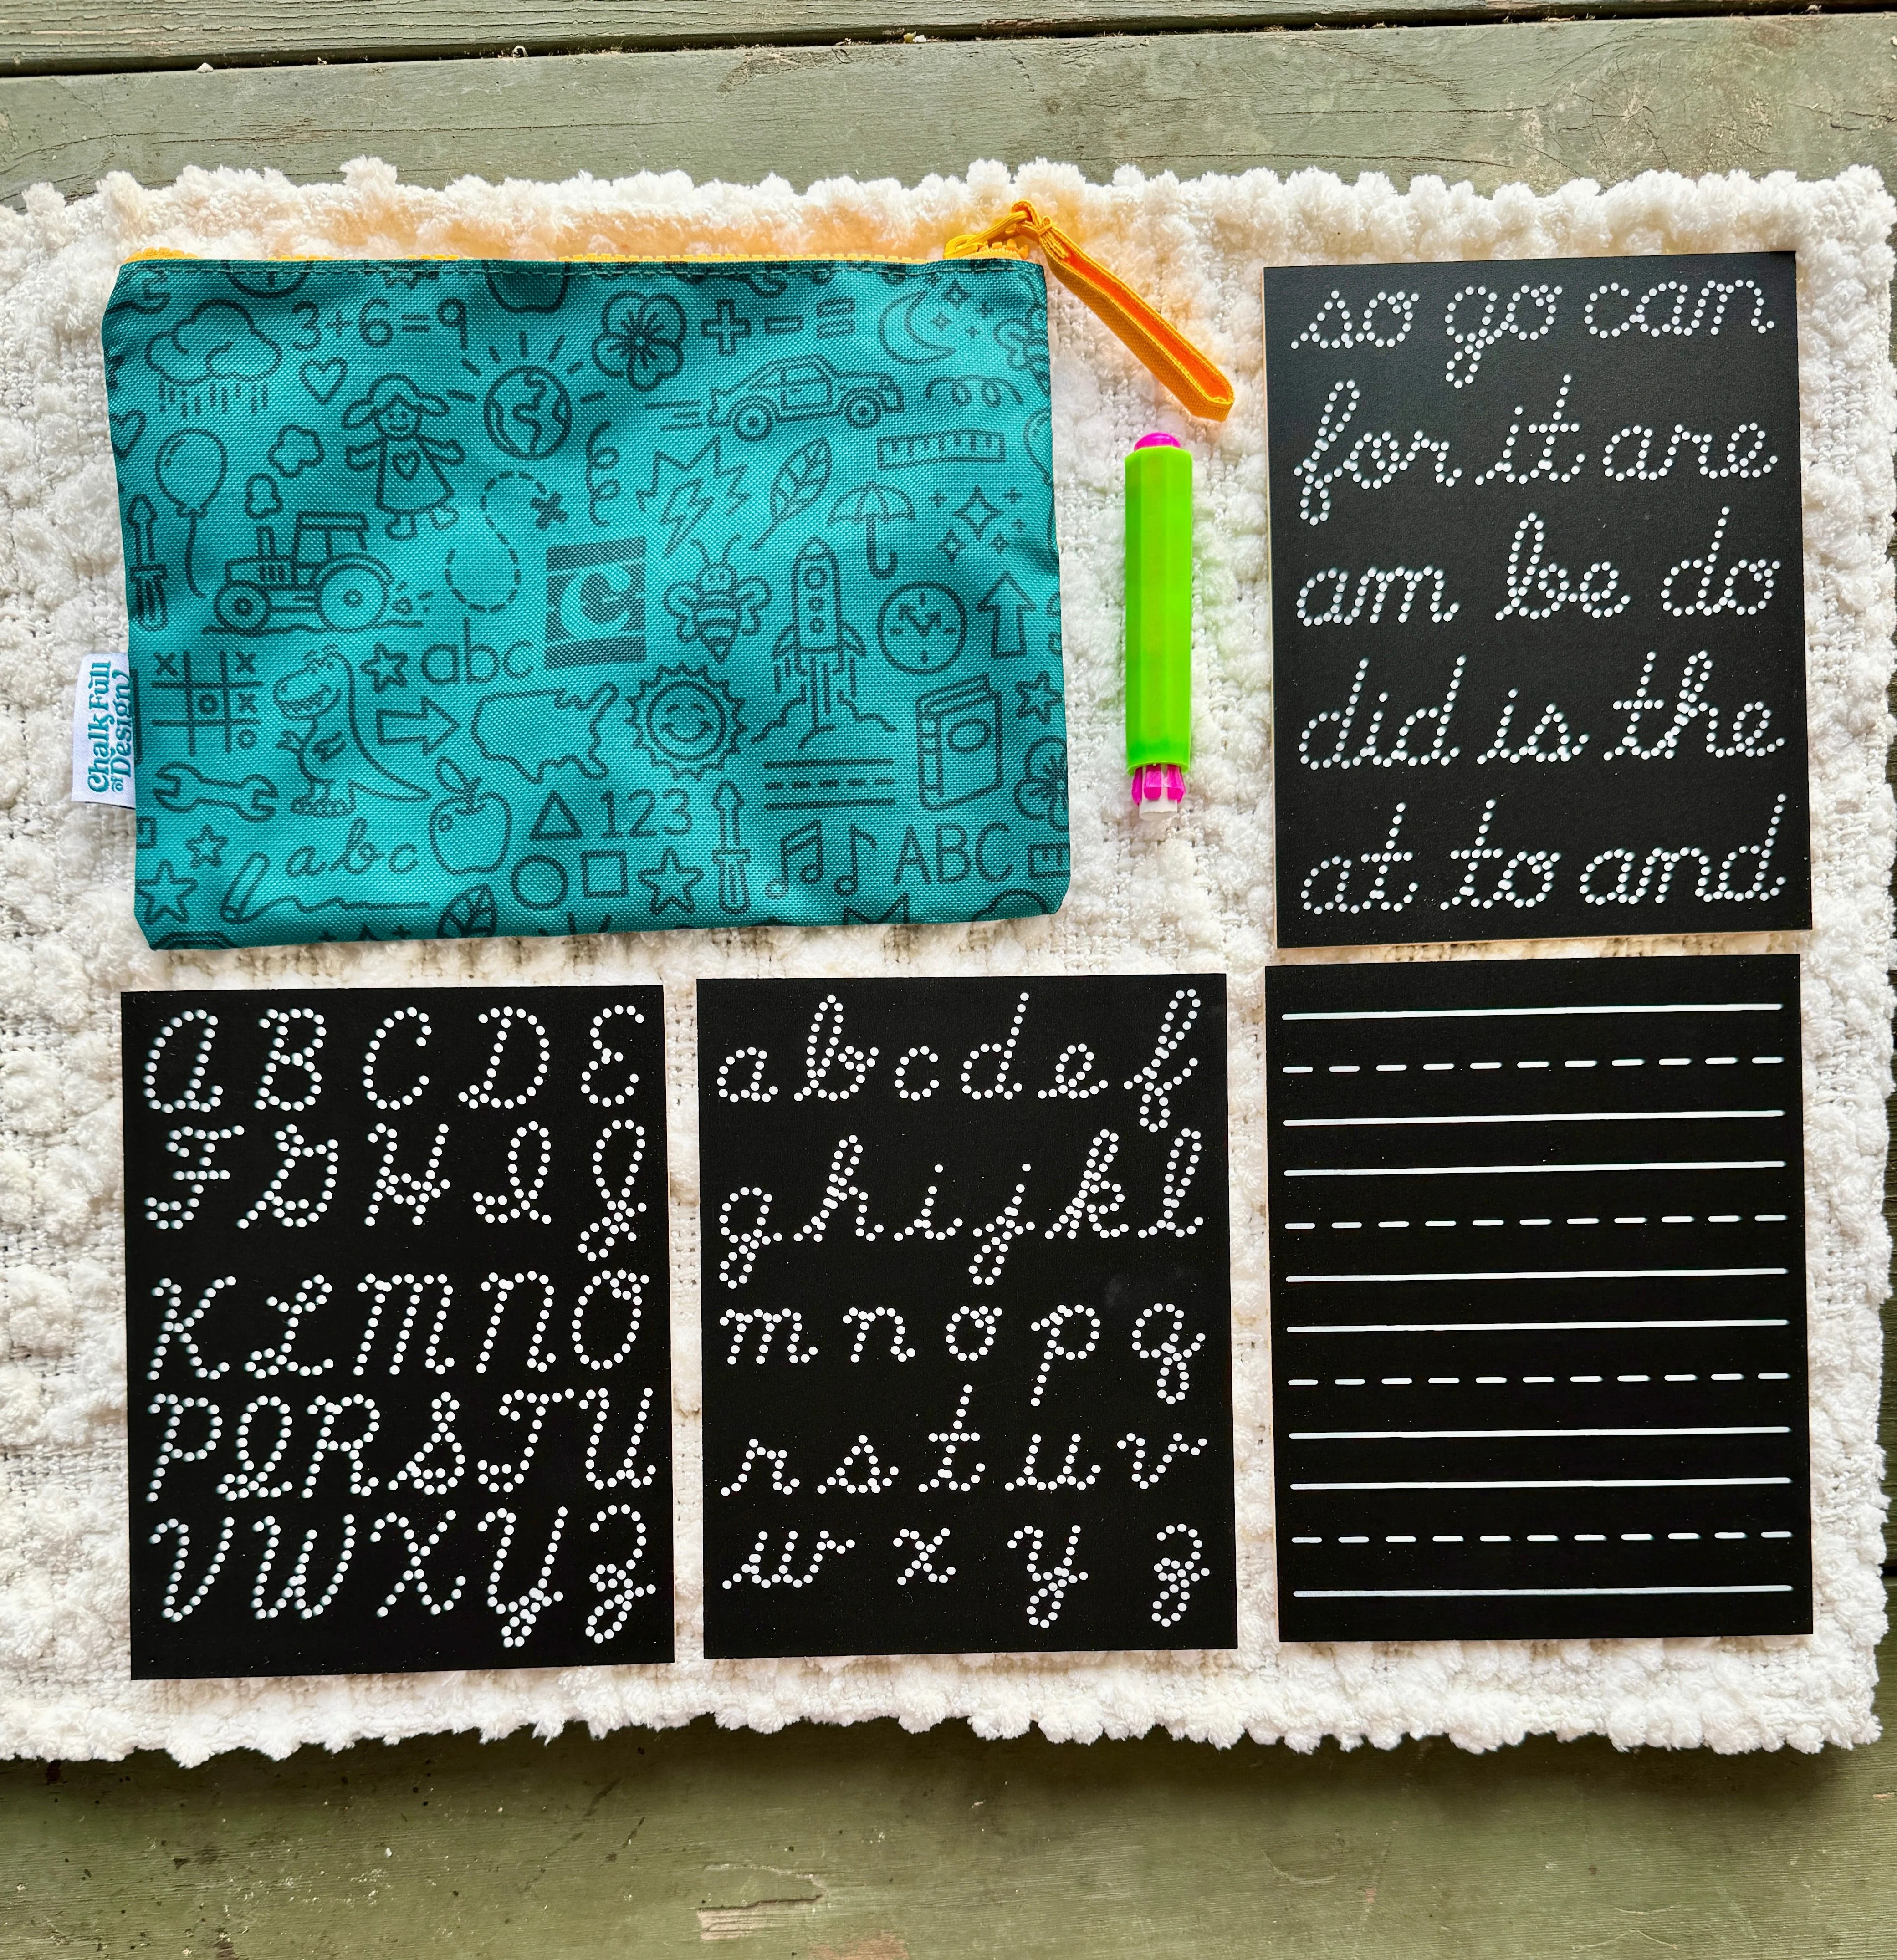 3+6=9
C
abc
Chalk Full
of Design
123
abc
ABC
so go can
for it are
am be do
did is the
at to and
A B C D E
F G H I J
K L M N O
P Q R S T U
V W X Y Z
a b c d e f
g h i j k l
m n o p q
r s t u v
w x y z